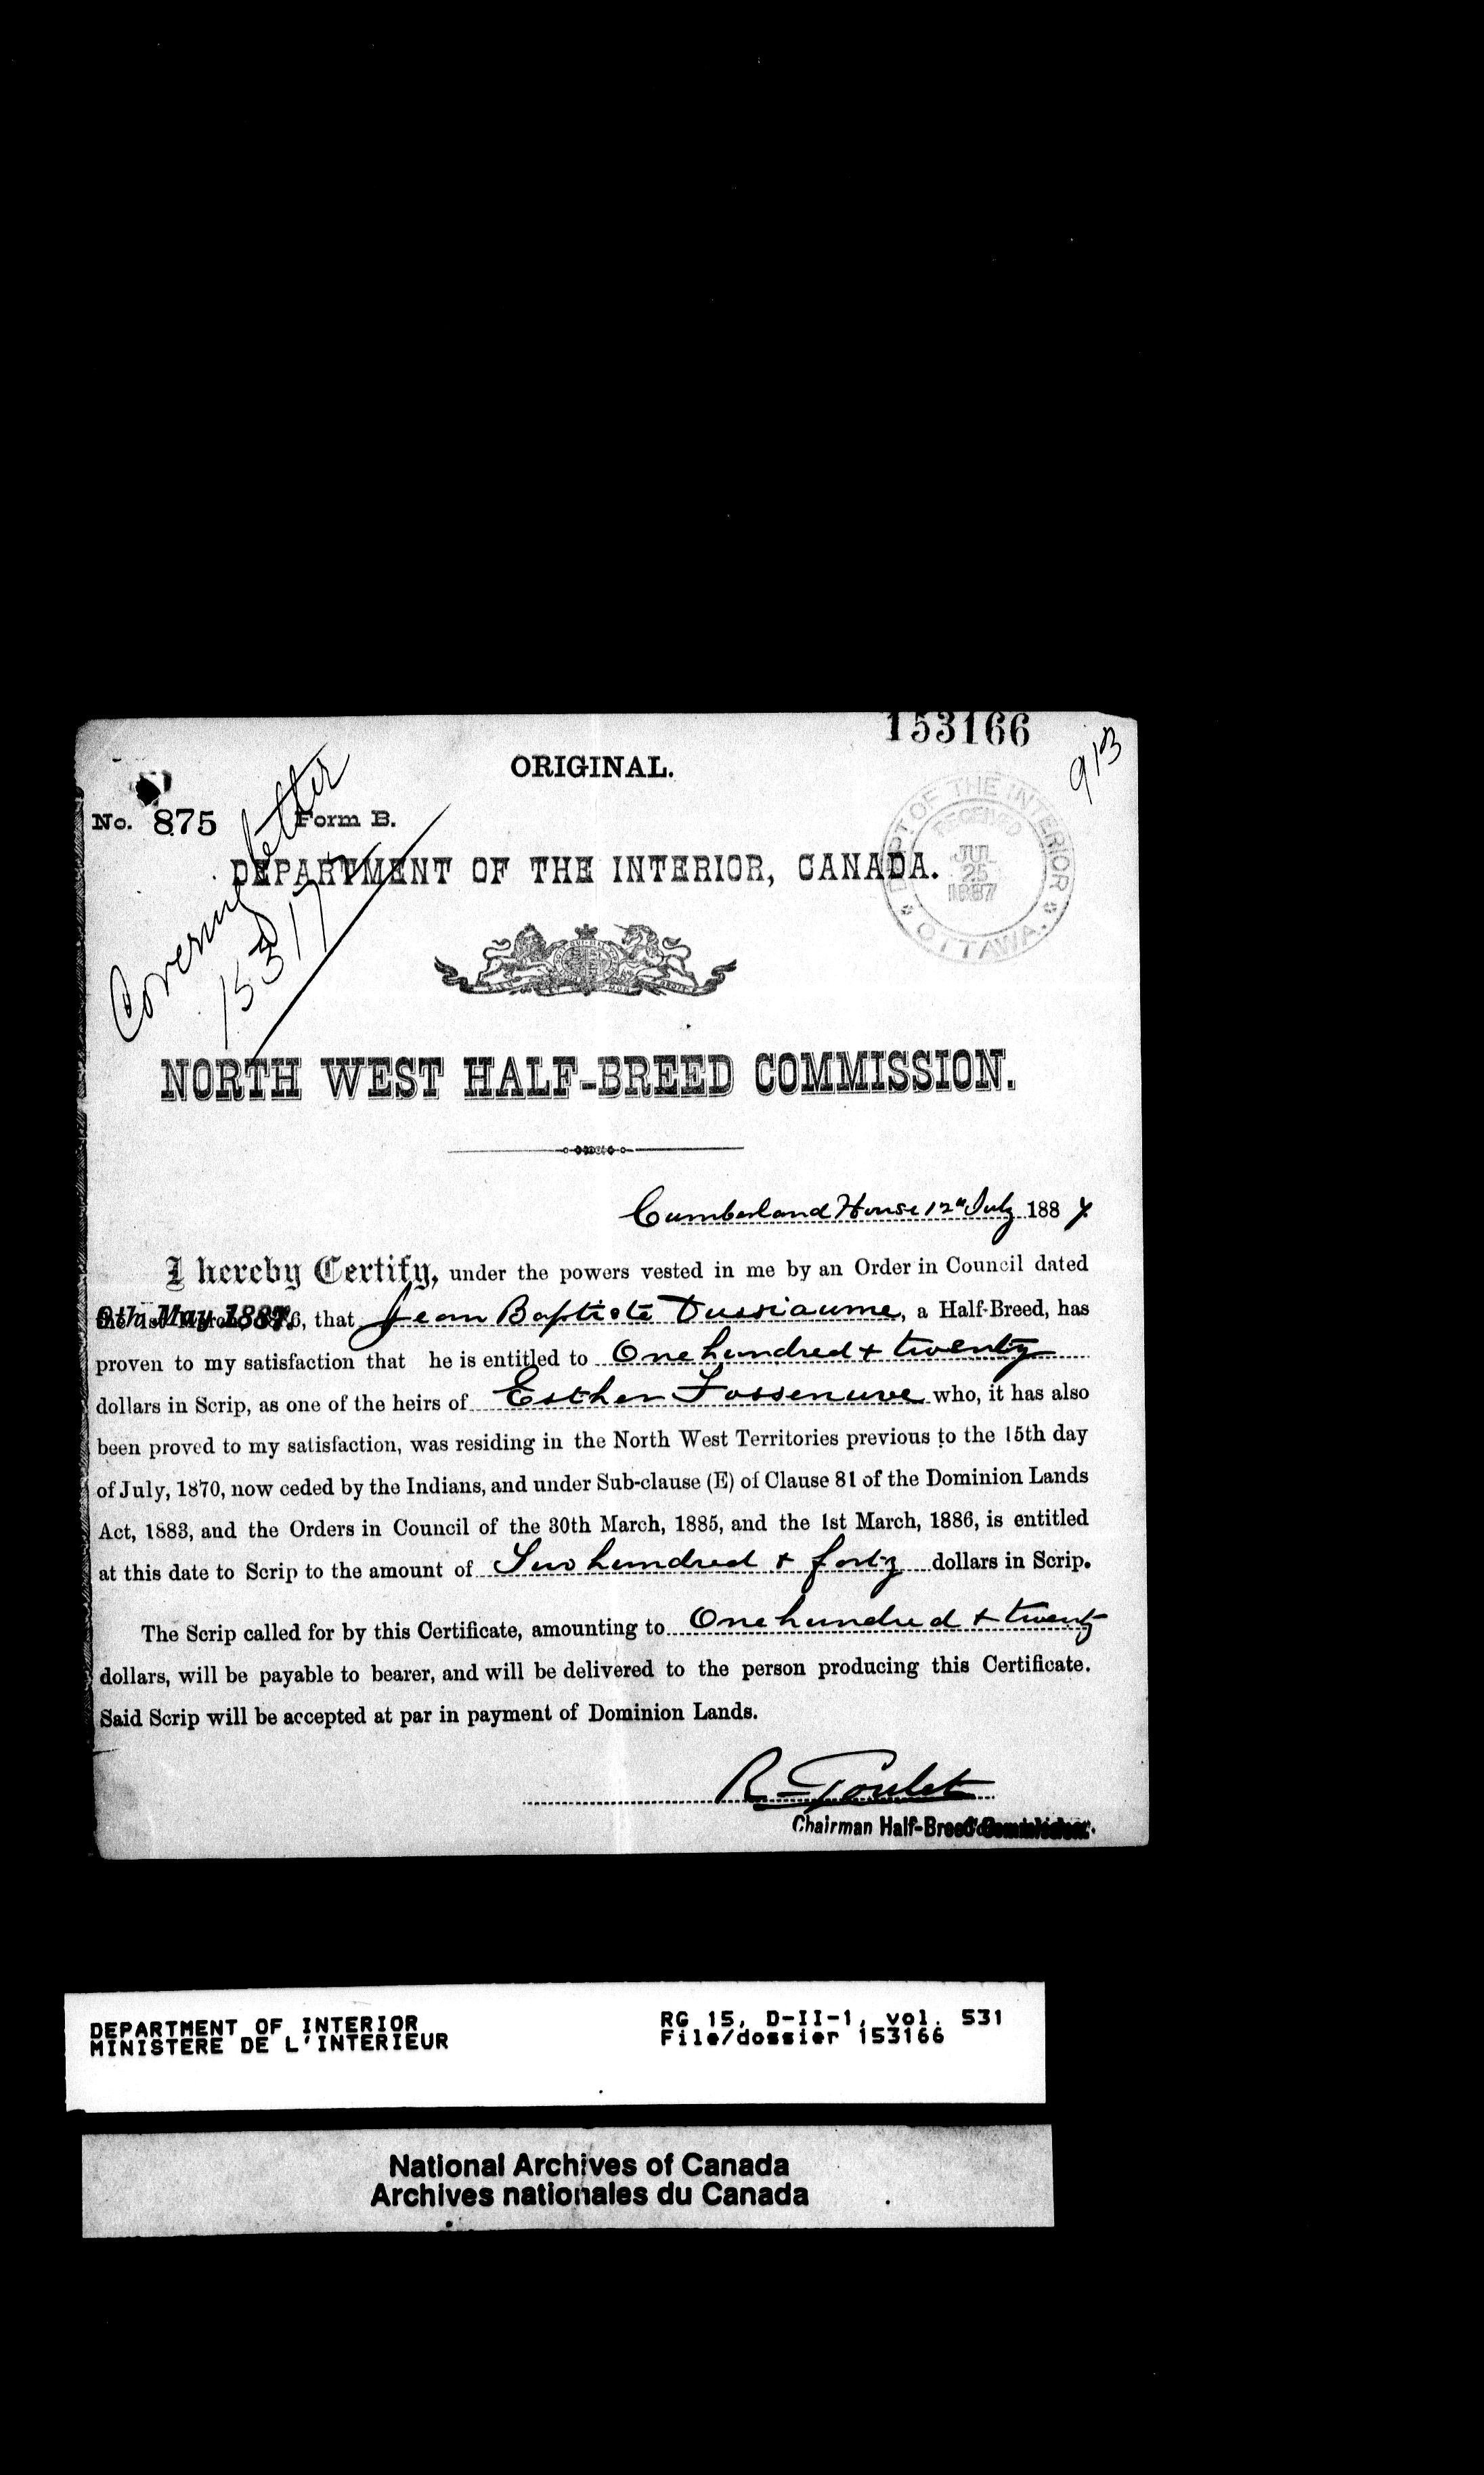 153166
913
ORIGINAL.
No. 875 Form B.
Covering letter
DEPT OF THE INTERIOR
RECEIVED
JUL
25
1887
OTTAWA.
DEPARTMENT OF THE INTERIOR, CANADA.
NORTH WEST HALF-BREED COMMISSION.
Cumberland House 12th July 1887
I hereby Certify, under the powers vested in me by an Order in Council dated
9th May 1887, that Jean Baptiste Dussiaume, a Half-Breed, has
proven to my satisfaction that he is entitled to One hundred + twenty
dollars in Scrip, as one of the heirs of Esther Fossenuve who, it has also
been proved to my satisfaction, was residing in the North West Territories previous to the 15th day
of July, 1870, now ceded by the Indians, and under Sub-clause (E) of Clause 81 of the Dominion Lands
Act, 1883, and the Orders in Council of the 30th March, 1885, and the 1st March, 1886, is entitled
at this date to Scrip to the amount of Two hundred + forty dollars in Scrip.
The Scrip called for by this Certificate, amounting to One hundred + twenty
dollars, will be payable to bearer, and will be delivered to the person producing this Certificate.
Said Scrip will be accepted at par in payment of Dominion Lands.
R Goulet
Chairman Half-Breed
DEPARTMENT OF INTERIOR
MINISTERE DE L'INTERIEUR
RG 15, D-II-1, vol. 531
File/dossier 153166
National Archives of Canada
Archives nationales du Canada